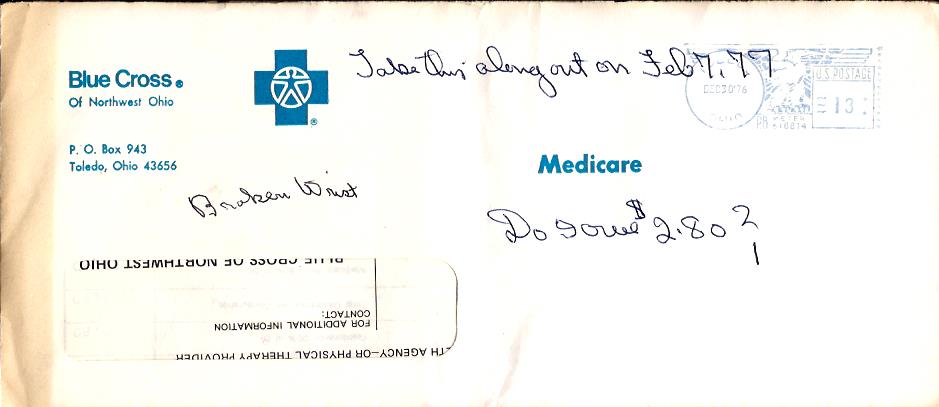 Take this along out on Feb 7, 77
Blue Cross®
Of Northwest Ohio
DEC 30 '76
OHIO
U.S. POSTAGE
13
PB METER
P. O. Box 943
Toledo, Ohio 43656
Medicare
Broken Wrist
Do I owe $2.80?
BLUE CROSS OF NORTHWEST OHIO
CONTACT:
FOR ADDITIONAL INFORMATION
TH AGENCY—OR PHYSICAL THERAPY PROVIDER